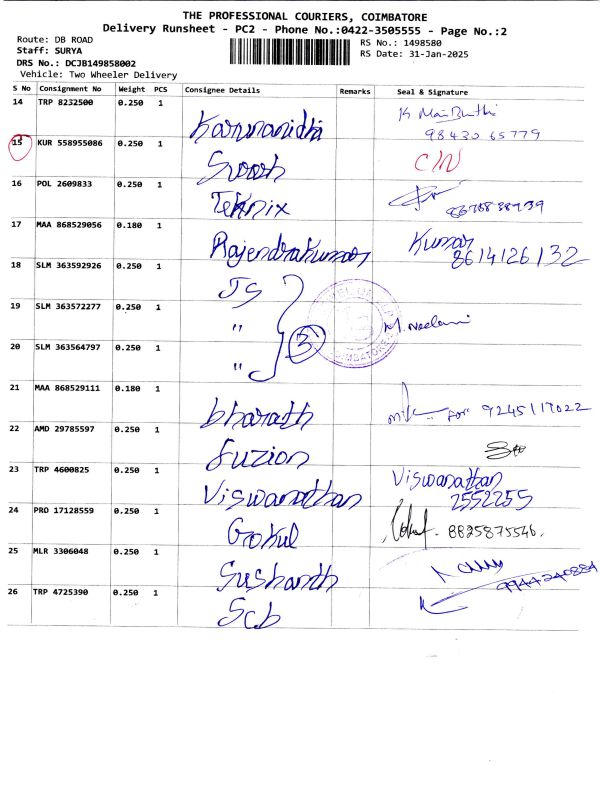 THE PROFESSIONAL COURIERS, COIMBATORE
Delivery Runsheet - PC2 - Phone No.:0422-3505555 - Page No.:2
Route: DB ROAD
RS No.: 1498580
Staff: SURYA
RS Date: 31-Jan-2025
DRS No.: DCJB149858002
Vehicle: Two Wheeler Delivery
S No Consignment No Weight PCS Consignee Details Remarks Seal & Signature
14 TRP 8232500 0.250 1 Karunanidhi
98430 65779
15 KUR 558955086 0.250 1 Suresh C/N
16 POL 2609833 0.250 1 Teknix
17 MAA 868529056 0.180 1 Rajendrakumar Kumar
8614126132
18 SLM 363592926 0.250 1 JS
19 SLM 363572277 0.250 1 " M. Neelani
3
20 SLM 363564797 0.250 1 "
21 MAA 868529111 0.180 1 bharath for 9245117022
22 AMD 29785597 0.250 1 fuzion
23 TRP 4600825 0.250 1 Viswanathan Viswanathan
2552255
24 PRO 17128559 0.250 1 Gokul 8825875546.
25 MLR 3306048 0.250 1 Sushanth
9944240884
26 TRP 4725390 0.250 1 Scb